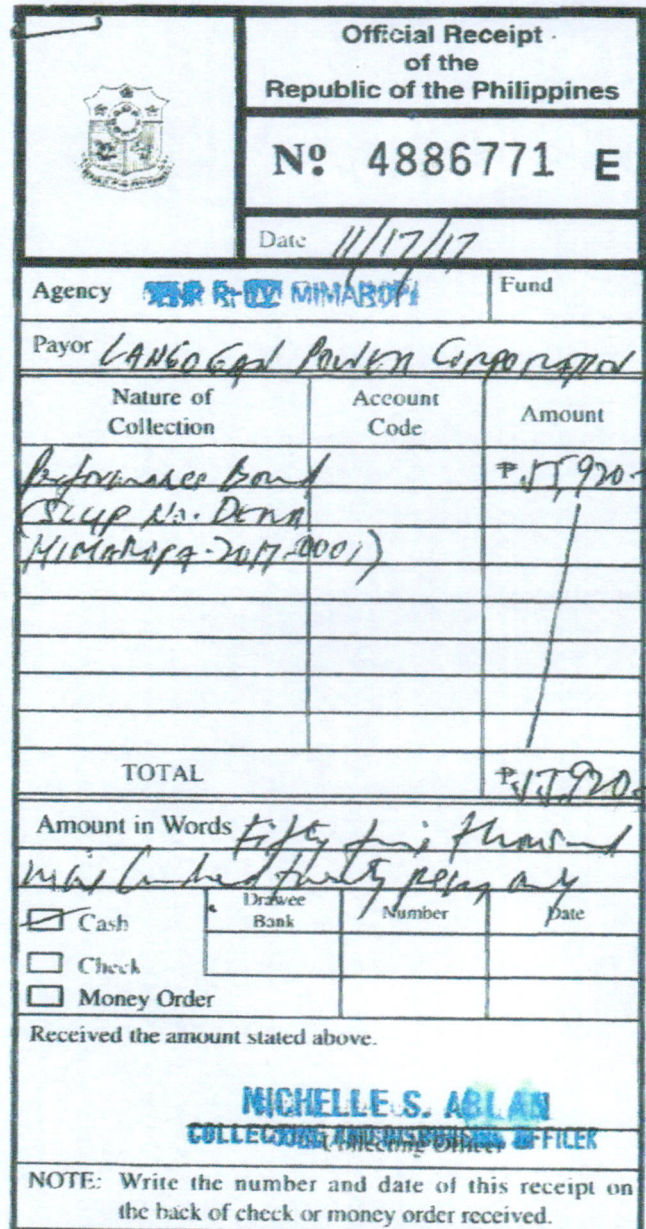 Official Receipt
of the
Republic of the Philippines
Nº 4886771 E
Date 11/17/17
Agency DENR R-IV MIMAROPA
Fund
Payor LANGOGAN POWER CORPORATION
Nature of Collection
Account Code
Amount
Performance Bond ₱55,920-
(SLUP No. DENR
MIMAROPA-2017-0001)
TOTAL ₱55,920-
Amount in Words Fifty five thousand
nine hundred twenty pesos only
Cash
Drawee Bank
Number
Date
Check
Money Order
Received the amount stated above.
MICHELLE S. ABLAN
COLLECTING AND DISBURSING OFFICER
Collecting Officer
NOTE: Write the number and date of this receipt on
the back of check or money order received.